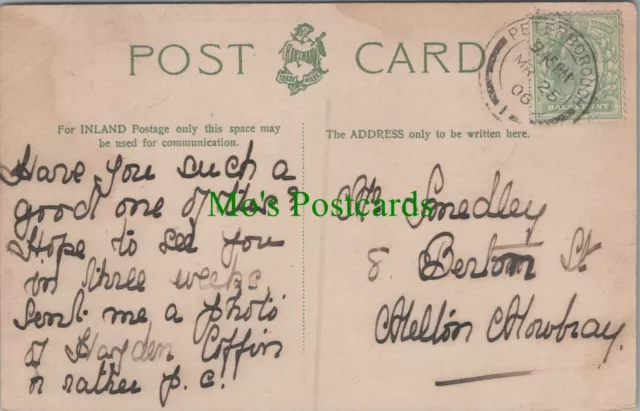 POST CARD
HARTMANN
TRADE MARK
PETERBOROUGH
9.15 PM
MR 25
06
HALFPENNY
For INLAND Postage only this space may
be used for communication.
The ADDRESS only to be written here.
Have you such a
good one of this?
Hope to see you
in three weeks.
Sent me a photo
of Hayden Coffin
or rather p.c.!
Mo's Postcards
Mr Smedley
8 Bertom St.
Melton Mowbray.